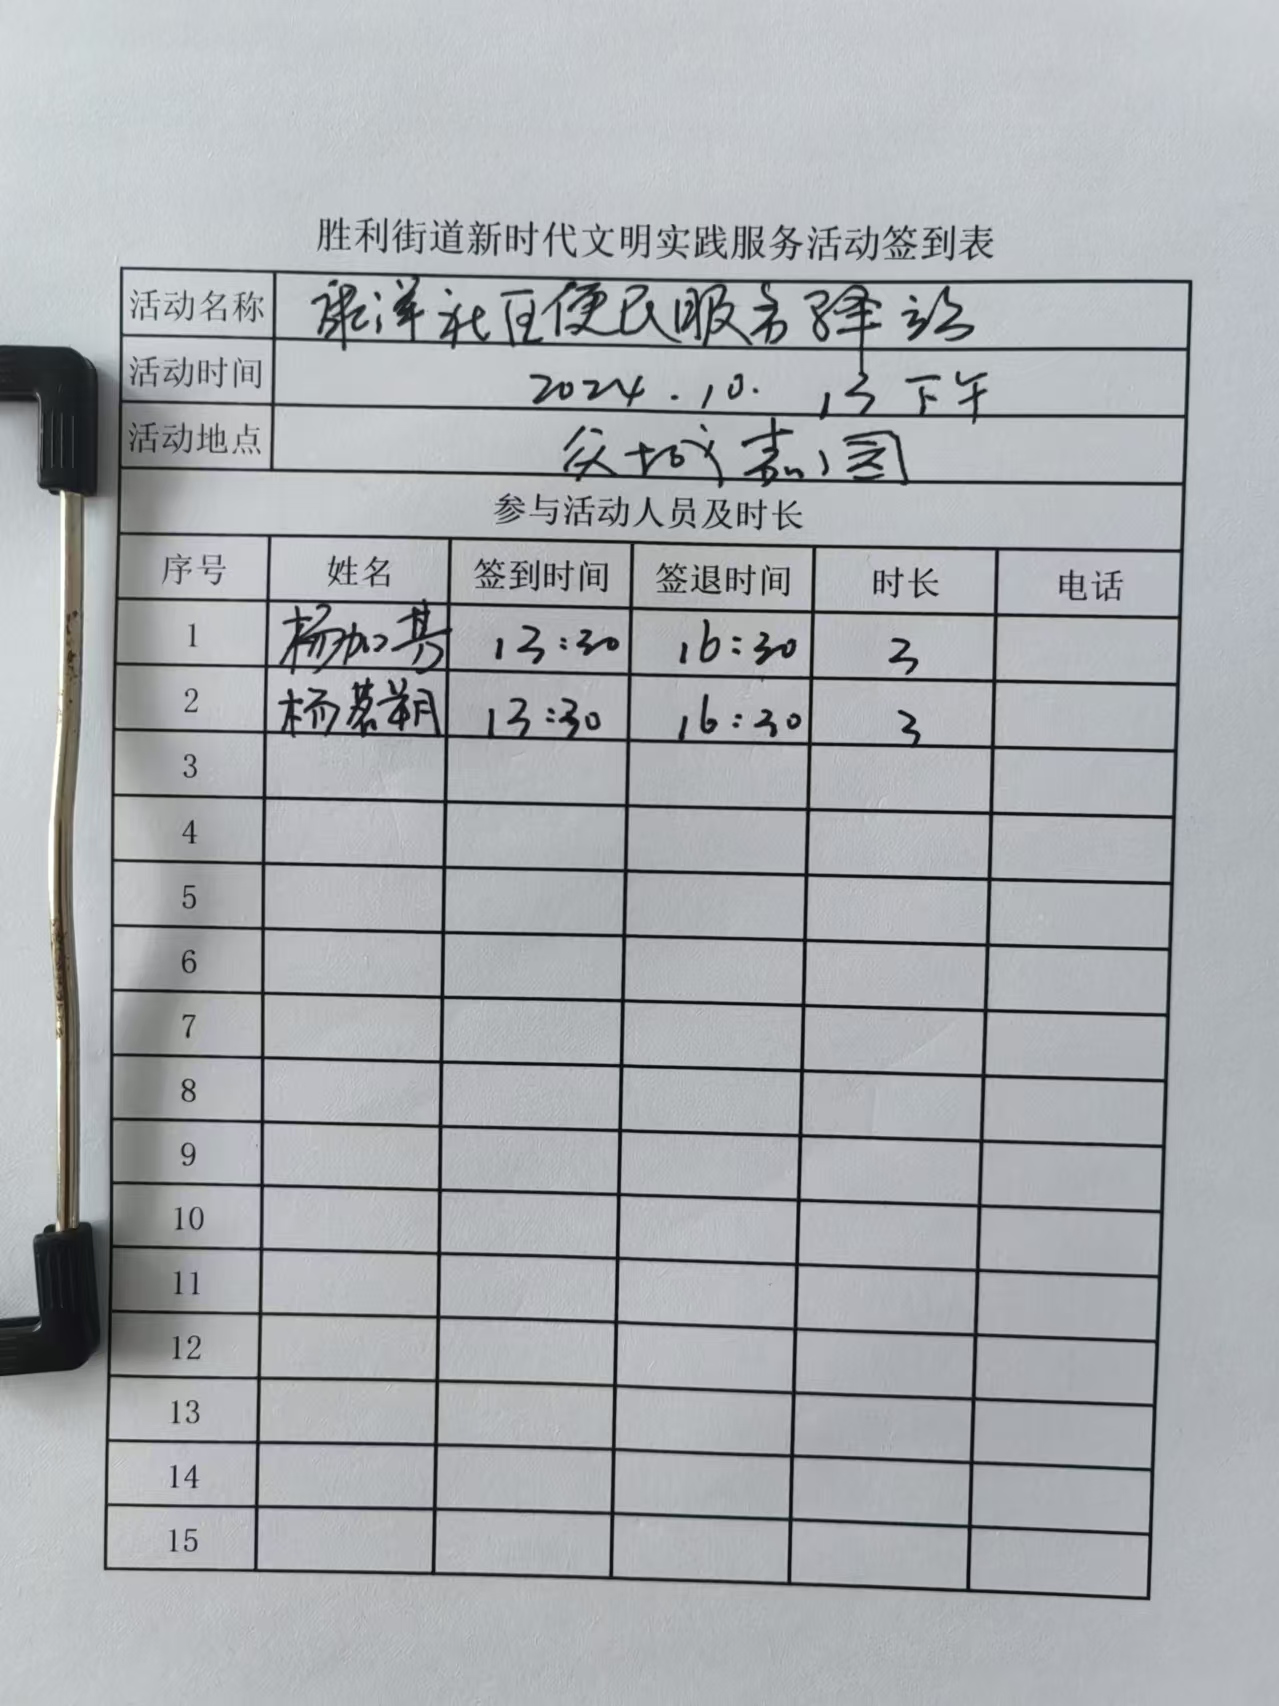 胜利街道新时代文明实践服务活动签到表
活动名称 社区便民服务驿站
活动时间 2024.10. 13 下午
活动地点 嘉园
参与活动人员及时长
序号 姓名 签到时间 签退时间 时长 电话
1 杨加其 13:30 16:30 3
2 杨慕朔 13:30 16:30 3
3
4
5
6
7
8
9
10
11
12
13
14
15